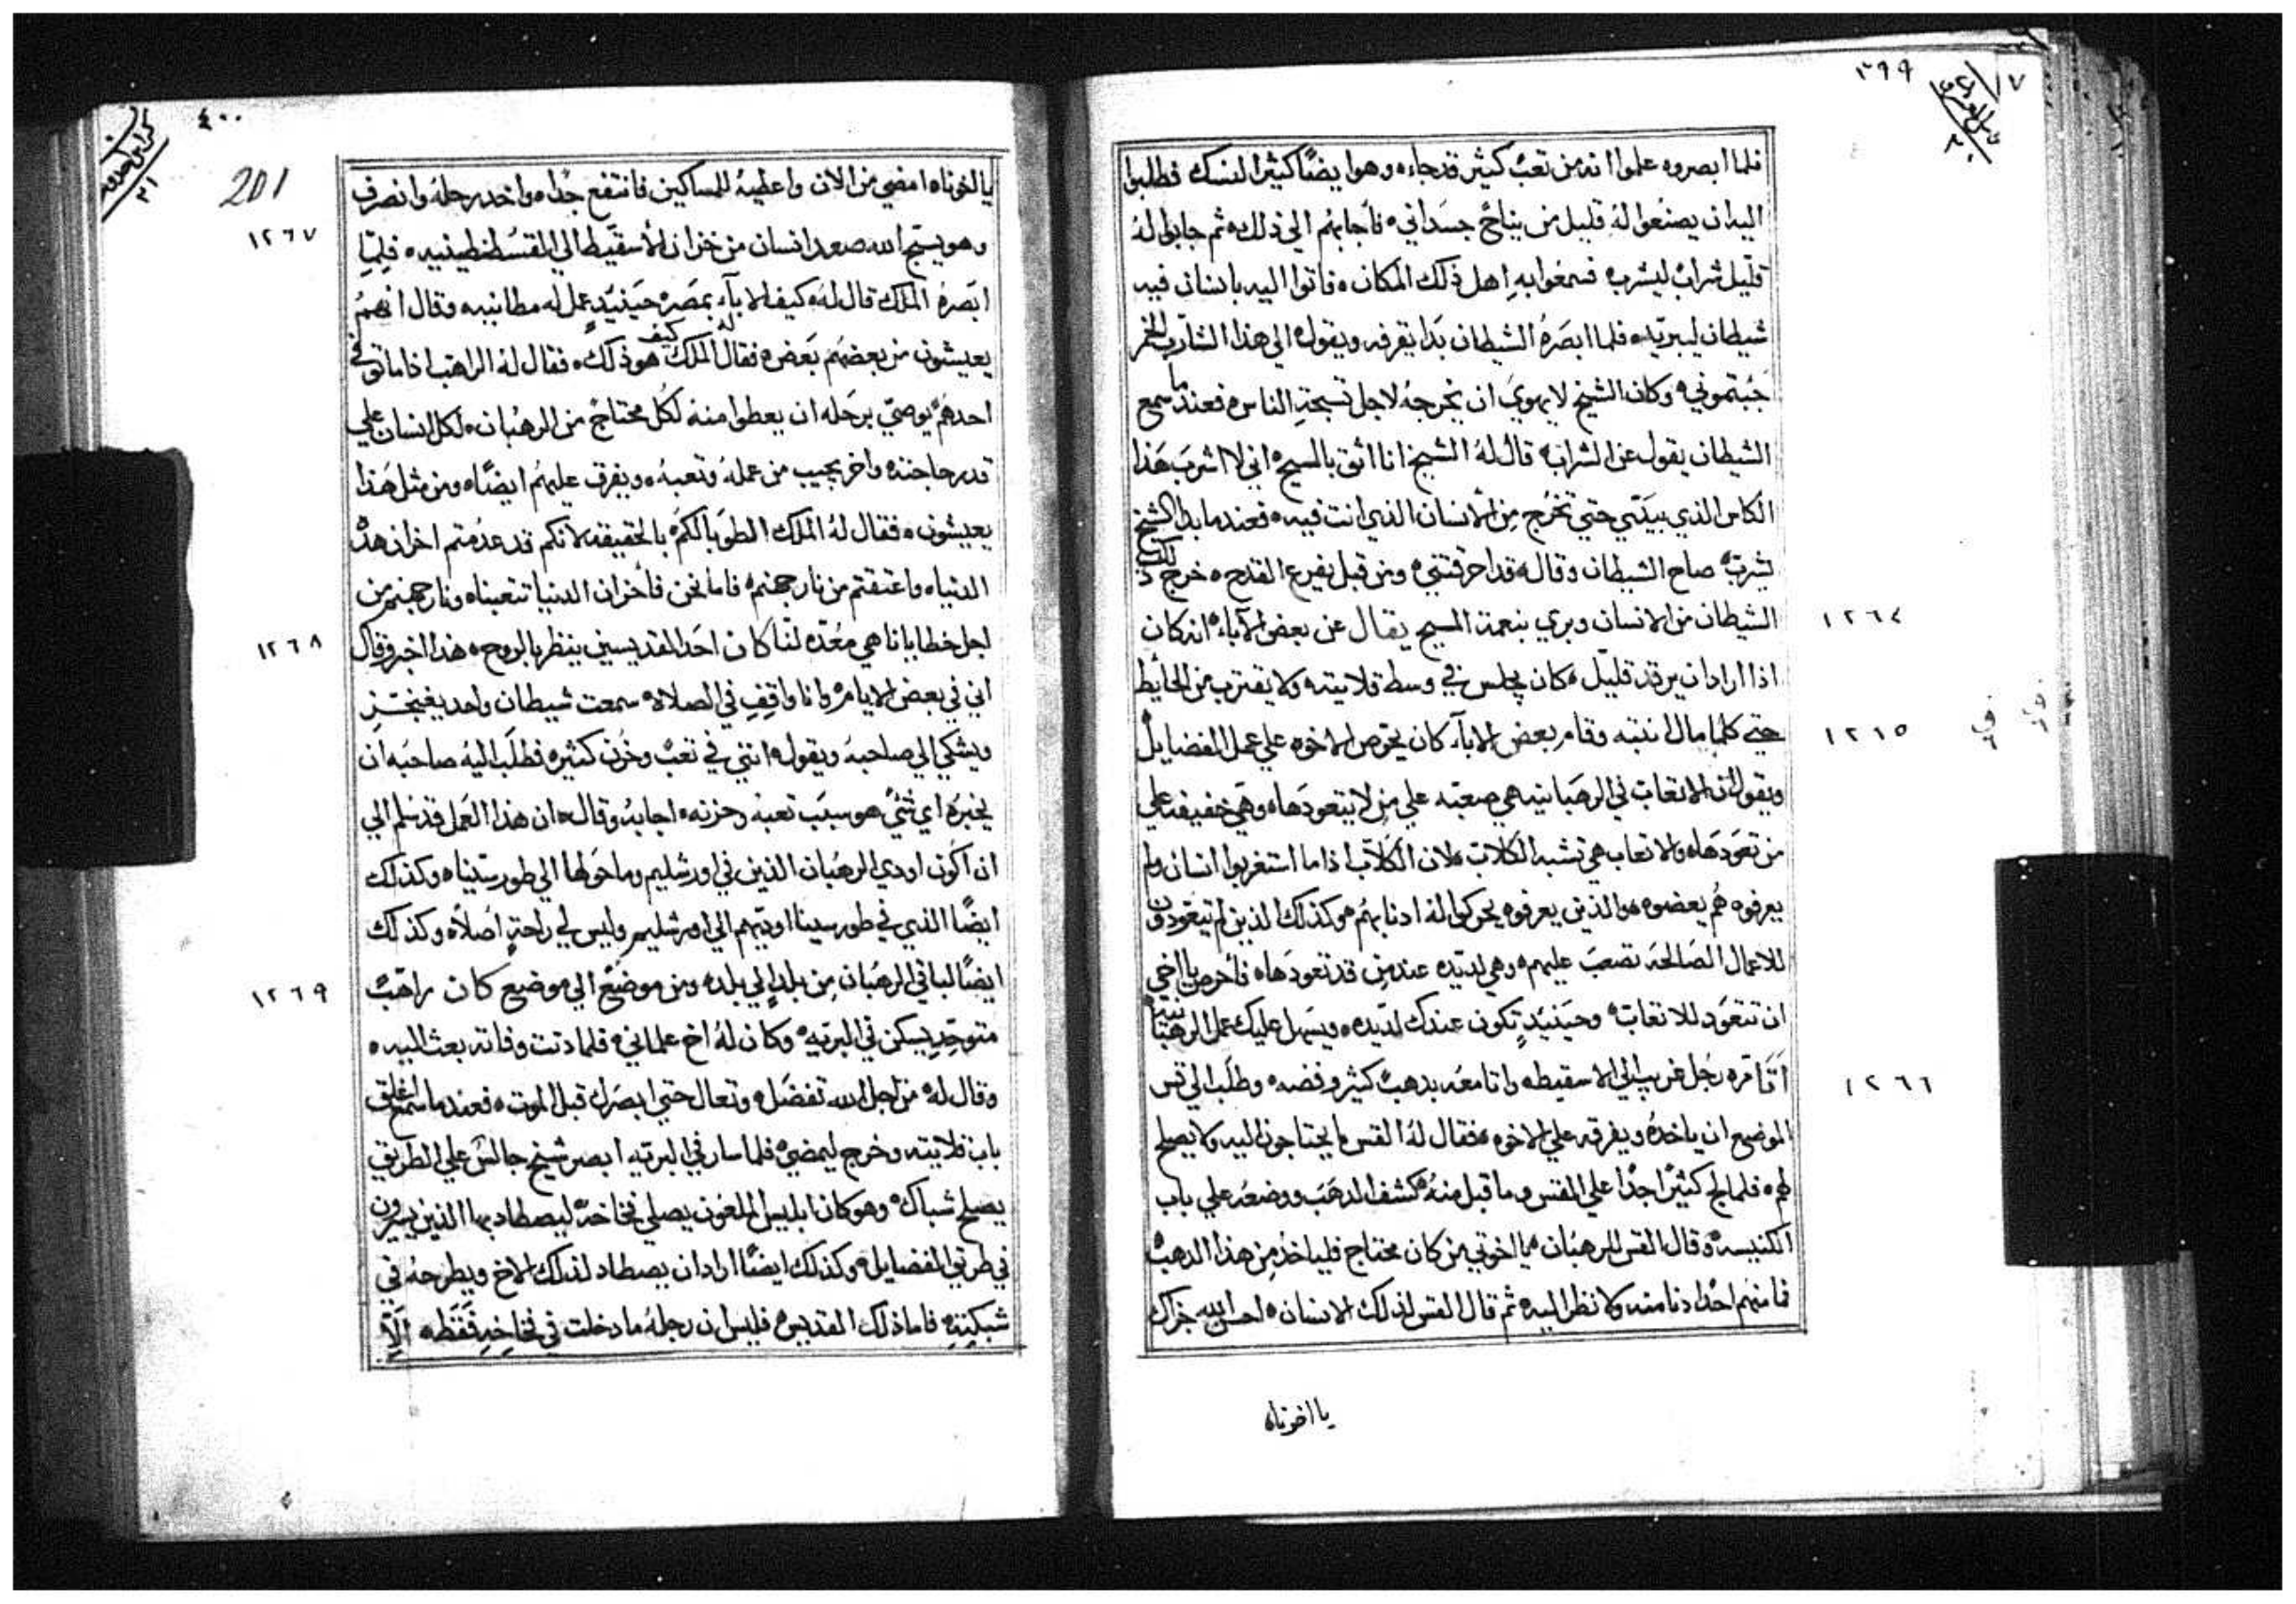 ٣٩٩
فلما ابصروه علموا انه من تعب كثير قد جاء، وهو ايضًا كثير النسك فطلبوا
اليه ان يصنعوا له قليل من يناح جسداني، فاجابهم الي ذلك، ثم جابوا له
قليل شراب ليشرب فسمعوا به اهل ذلك المكان، فاتوا اليه بانسان فيه
شيطان ليبريه، فلما ابصره الشيطان بدا يقرفه ويقول، الي هذا الشارب الخمر
جبتموني، وكان الشيخ لا يهوي ان يخرجه لاجل تسبحة الناس، فعندما سمع
الشيطان يقول عن الشراب، قال له الشيخ انا اثق بالمسيح، اني لا اشرب هذا
الكاس الذي بيدي حتي تخرج من الانسان الذي انت فيه، فعندما بدا الشيخ
يشرب، صاح الشيطان وقال، قد احرقتني، ومن قبل يفرع القدح، خرج ذلك
الشيطان من الانسان وبري بنعمة المسيح يقال عن بعض الآباء، انه كان
١٢٦٤
اذا اراد ان يرقد قليل، كان يجلس في وسط قلايته ولا يقترب من الحايط
حتي كلما مال انتبه وقام بعض الاباء كان يحرص الاخوه علي عمل الفضايل
١٢٦٥
ويقول ان الاتعاب في الرهبانيه هي صعبه علي من لا يتعودها، وهي خفيفه علي
من تعودها، والاتعاب هي تشبه الكلاب، لان الكلاب اذا ما استغربوا انسان ولم
يعرفوه هم يعضوه، والذين يعرفوه يحركوا له ادنابهم، وكذلك الذين لم يتعودون
للاعمال الصالحه تصعب عليهم، وهي لديده عند من قد تعودها، فأحرص يا اخي
ان تتعود للاتعاب، وحينيدٍ تكون عندك لديده، ويسهل عليك عمل الرهبانيه
اتا مره رجل غريب الي الاسقيط، واتا معه بدهب كثير وفضه، وطلب الي قس
١٢٦٦
الموضع ان ياخده ويفرقه علي الاخوه، فقال له القس ما يحتاجون اليه ولا يصلح
لهم، فلما لج كثيرًا جدًا علي القس وما قبل منه، كشف الدهب ووضعه علي باب
الكنيسه، وقال القس للرهبان، يا اخوتي من كان محتاج فلياخد من هذا الدهب
فما منهم احدًا دنا منه ولا نظر اليه، ثم قال القس لذلك الانسان، احسن الله جزاك
يا اخوناه
٤٠٠
201
يا اخوناه امضي من الان واعطيه للمساكين فانتفع جدًا، واخد رحله وانصرف
وهو يسبح الله صعد انسان من خزان الأسقيط الي القسطنطينيه، فلما
١٢٦٧
ابصره الملك قال له، كيف الاباء بمصر، حينيدٍ عمل له مطانيه، وقال انهم
يعيشون من بعضهم بعض، فقال له الملك كيف هو ذلك، فقال له الراهب اذا ما توفي
احدهم يوصي برحله ان يعطوا منه لكل محتاج من الرهبان، لكل انسان علي
قدر حاجته، واخر يجيب من عمله وتعبه، ويفرق عليهم ايضًا، ومن مثل هذا
يعيشون، فقال له الملك الطوبا لكم بالحقيقه، لانكم قد عدمتم احزان هذه
الدنيا، واعتقتم من نار جهنم، فاما نحن فأحزان الدنيا تتعبنا، ونار جهنم من
اجل خطايانا هي معده لنا كان احد القديسين ينظر بالروح، هذا اخبر وقال
١٢٦٨
اني في بعض الايام، وانا واقف في الصلاه، سمعت شيطان واحد
ويشكي الي صاحبه ويقول، انني في تعب وحزن كثير، فطلب اليه صاحبه ان
يخبره اي شيء هو سبب تعبه وحزنه، اجابه وقال، ان هذا العمل قد سلم الي
ان اكون اودي الرهبان الذين في اورشليم وما حولها الي طور سينا، وكذلك
ايضًا الذي في طور سينا اوديهم الي اورشليم، وليس لي راحةٍ اصلًا، وكذلك
ايضًا لباقي الرهبان من بلد الي بلد، ومن موضع الي موضع كان راهبٌ
١٢٦٩
متوحد يسكن في البريه، وكان له اخ علماني، فلما دنت وفاته بعث اليه،
وقال له، من اجل الله تفضل، وتعال حتي ابصرك قبل الموت، فعندما سمع اغلق
باب قلايته وخرج ليمضي، فلما سار في البريه ابصر شيخ جالس علي الطريق
يصلح شباك، وهو كان ابليس الملعون يصلي فخاخه، ليصطاد بها الذين يسيرون
في طريق الفضايل، وكذلك ايضًا اراد ان يصطاد لذلك الاخ ويطرحه في
شبكته، فاما ذلك القديس، فليس ان رجله ما دخلت في فخاخه فقط، الا